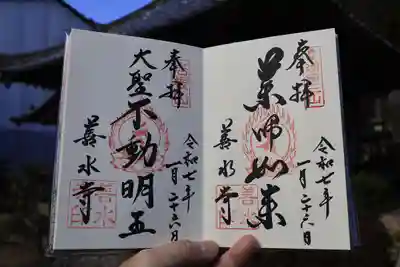 奉拝
薬師如来
善水寺
令和七年
一月二十六日
奉拝
大聖不動明王
善水寺
令和七年
一月二十六日